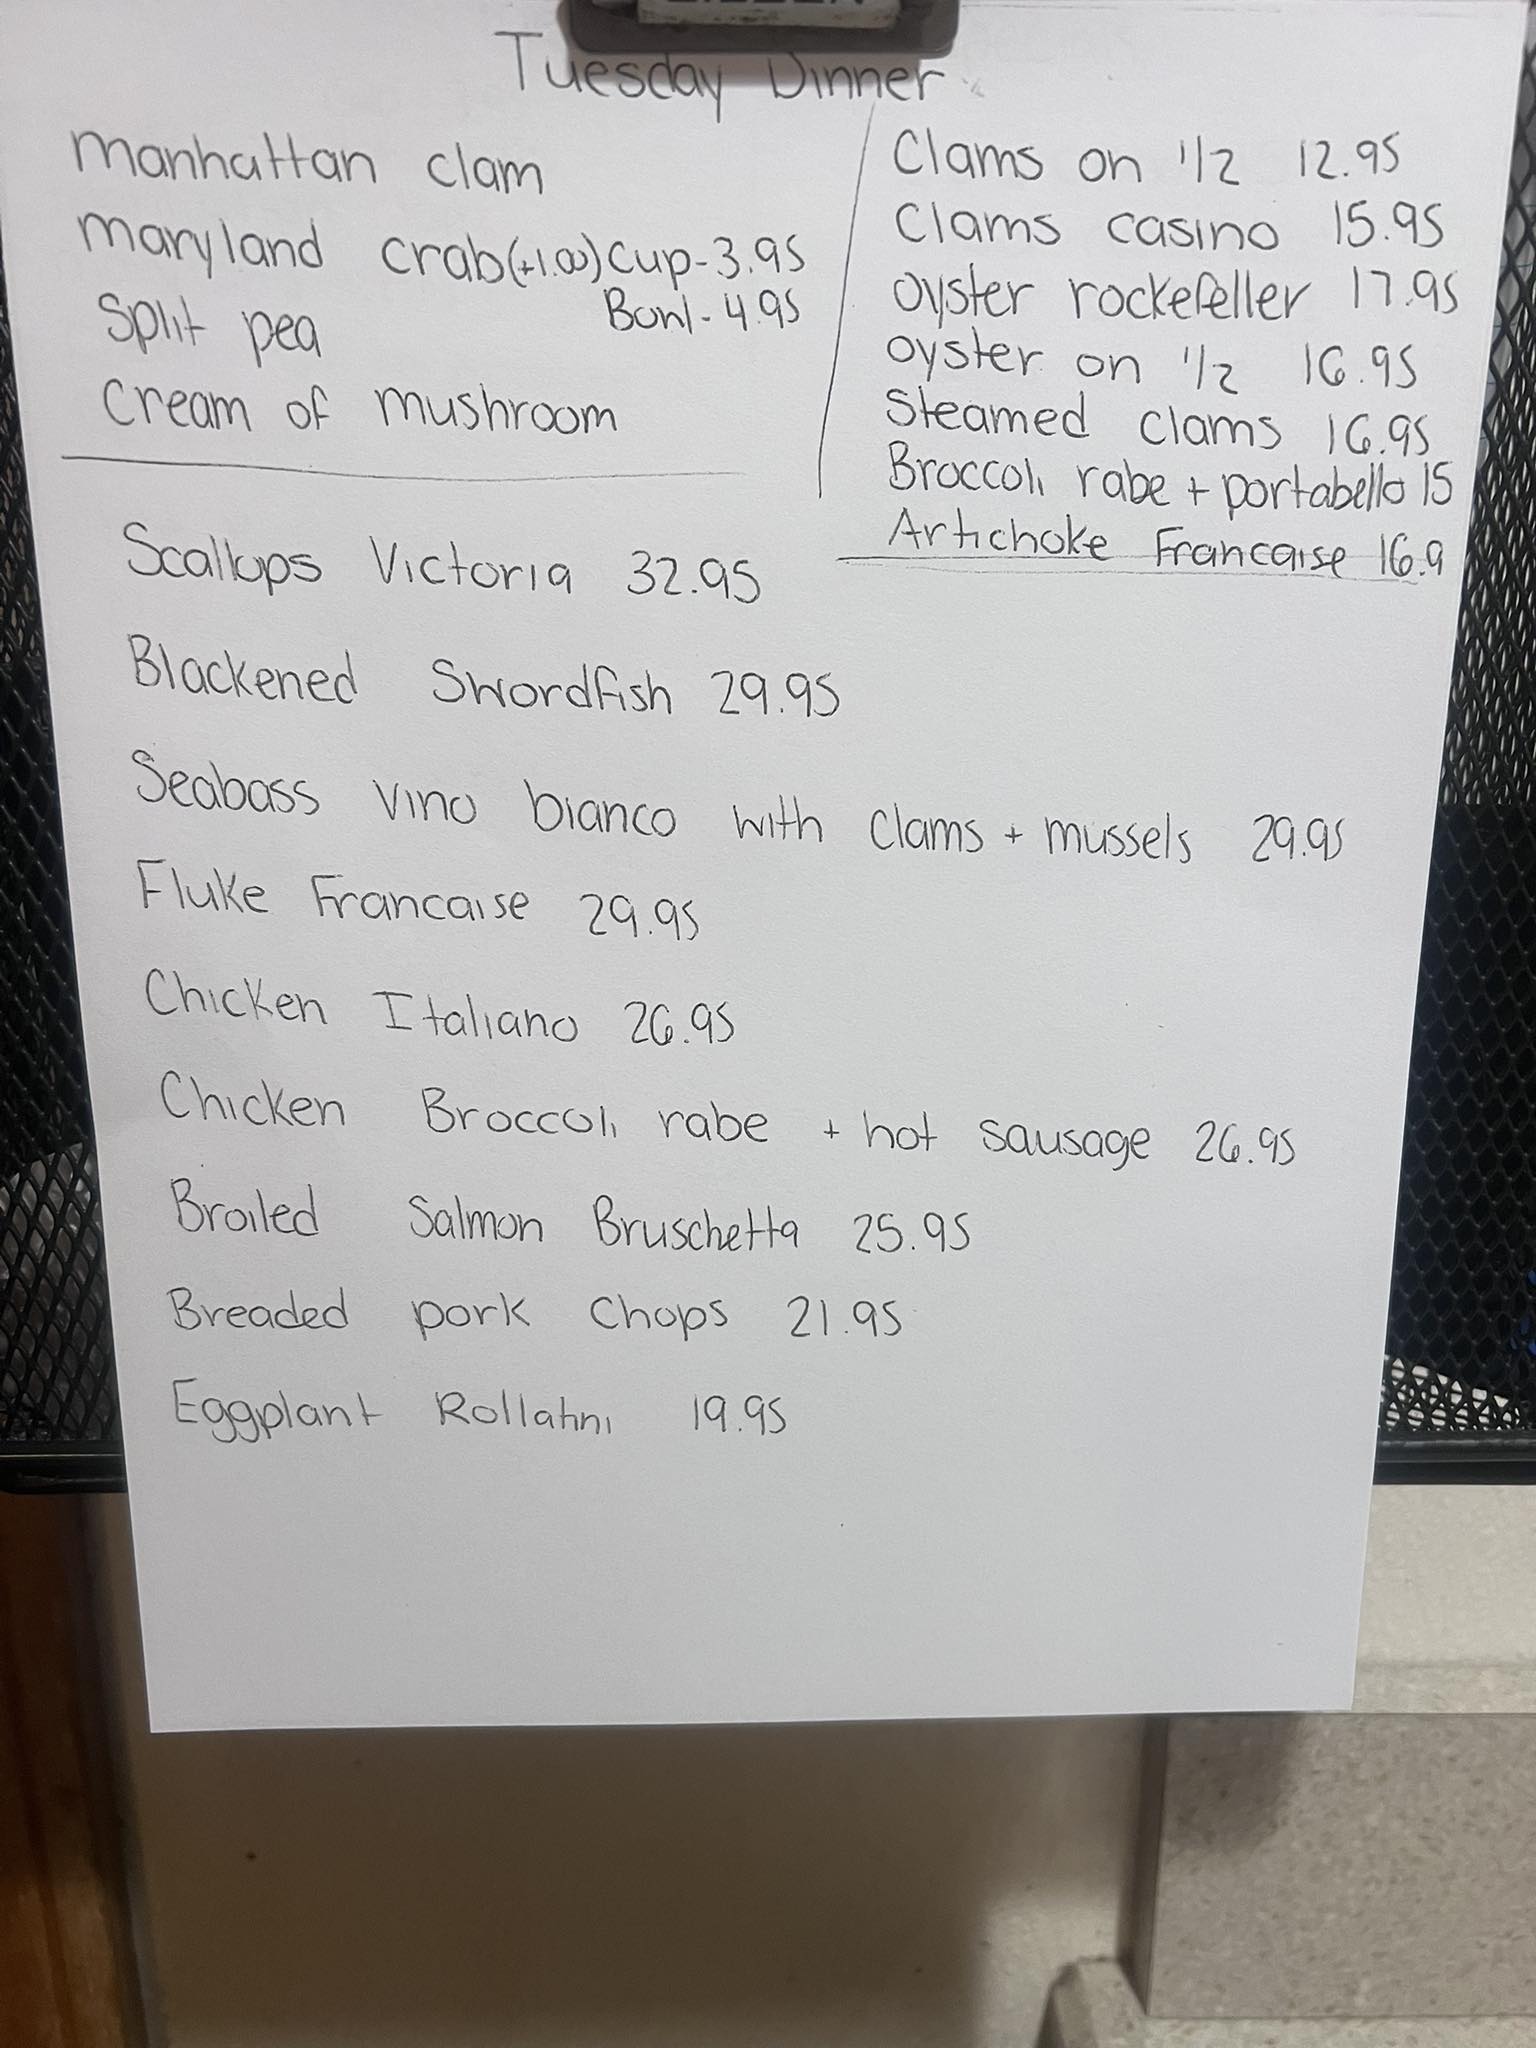 Tuesday Dinner
Manhattan clam
Maryland crab (+1.00) Cup - 3.95
Bowl - 4.95
Split pea
Cream of mushroom
Clams on 1/2 12.95
Clams casino 15.95
Oyster rockefeller 17.95
oyster on 1/2 16.95
Steamed clams 16.95
Broccoli rabe + portabello 15
Artichoke Francaise 16.9
Scallops Victoria 32.95
Blackened Swordfish 29.95
Seabass vino bianco with clams + mussels 29.95
Fluke Francaise 29.95
Chicken Italiano 26.95
Chicken Broccoli rabe + hot sausage 26.95
Broiled Salmon Bruschetta 25.95
Breaded pork chops 21.95
Eggplant Rollatini 19.95